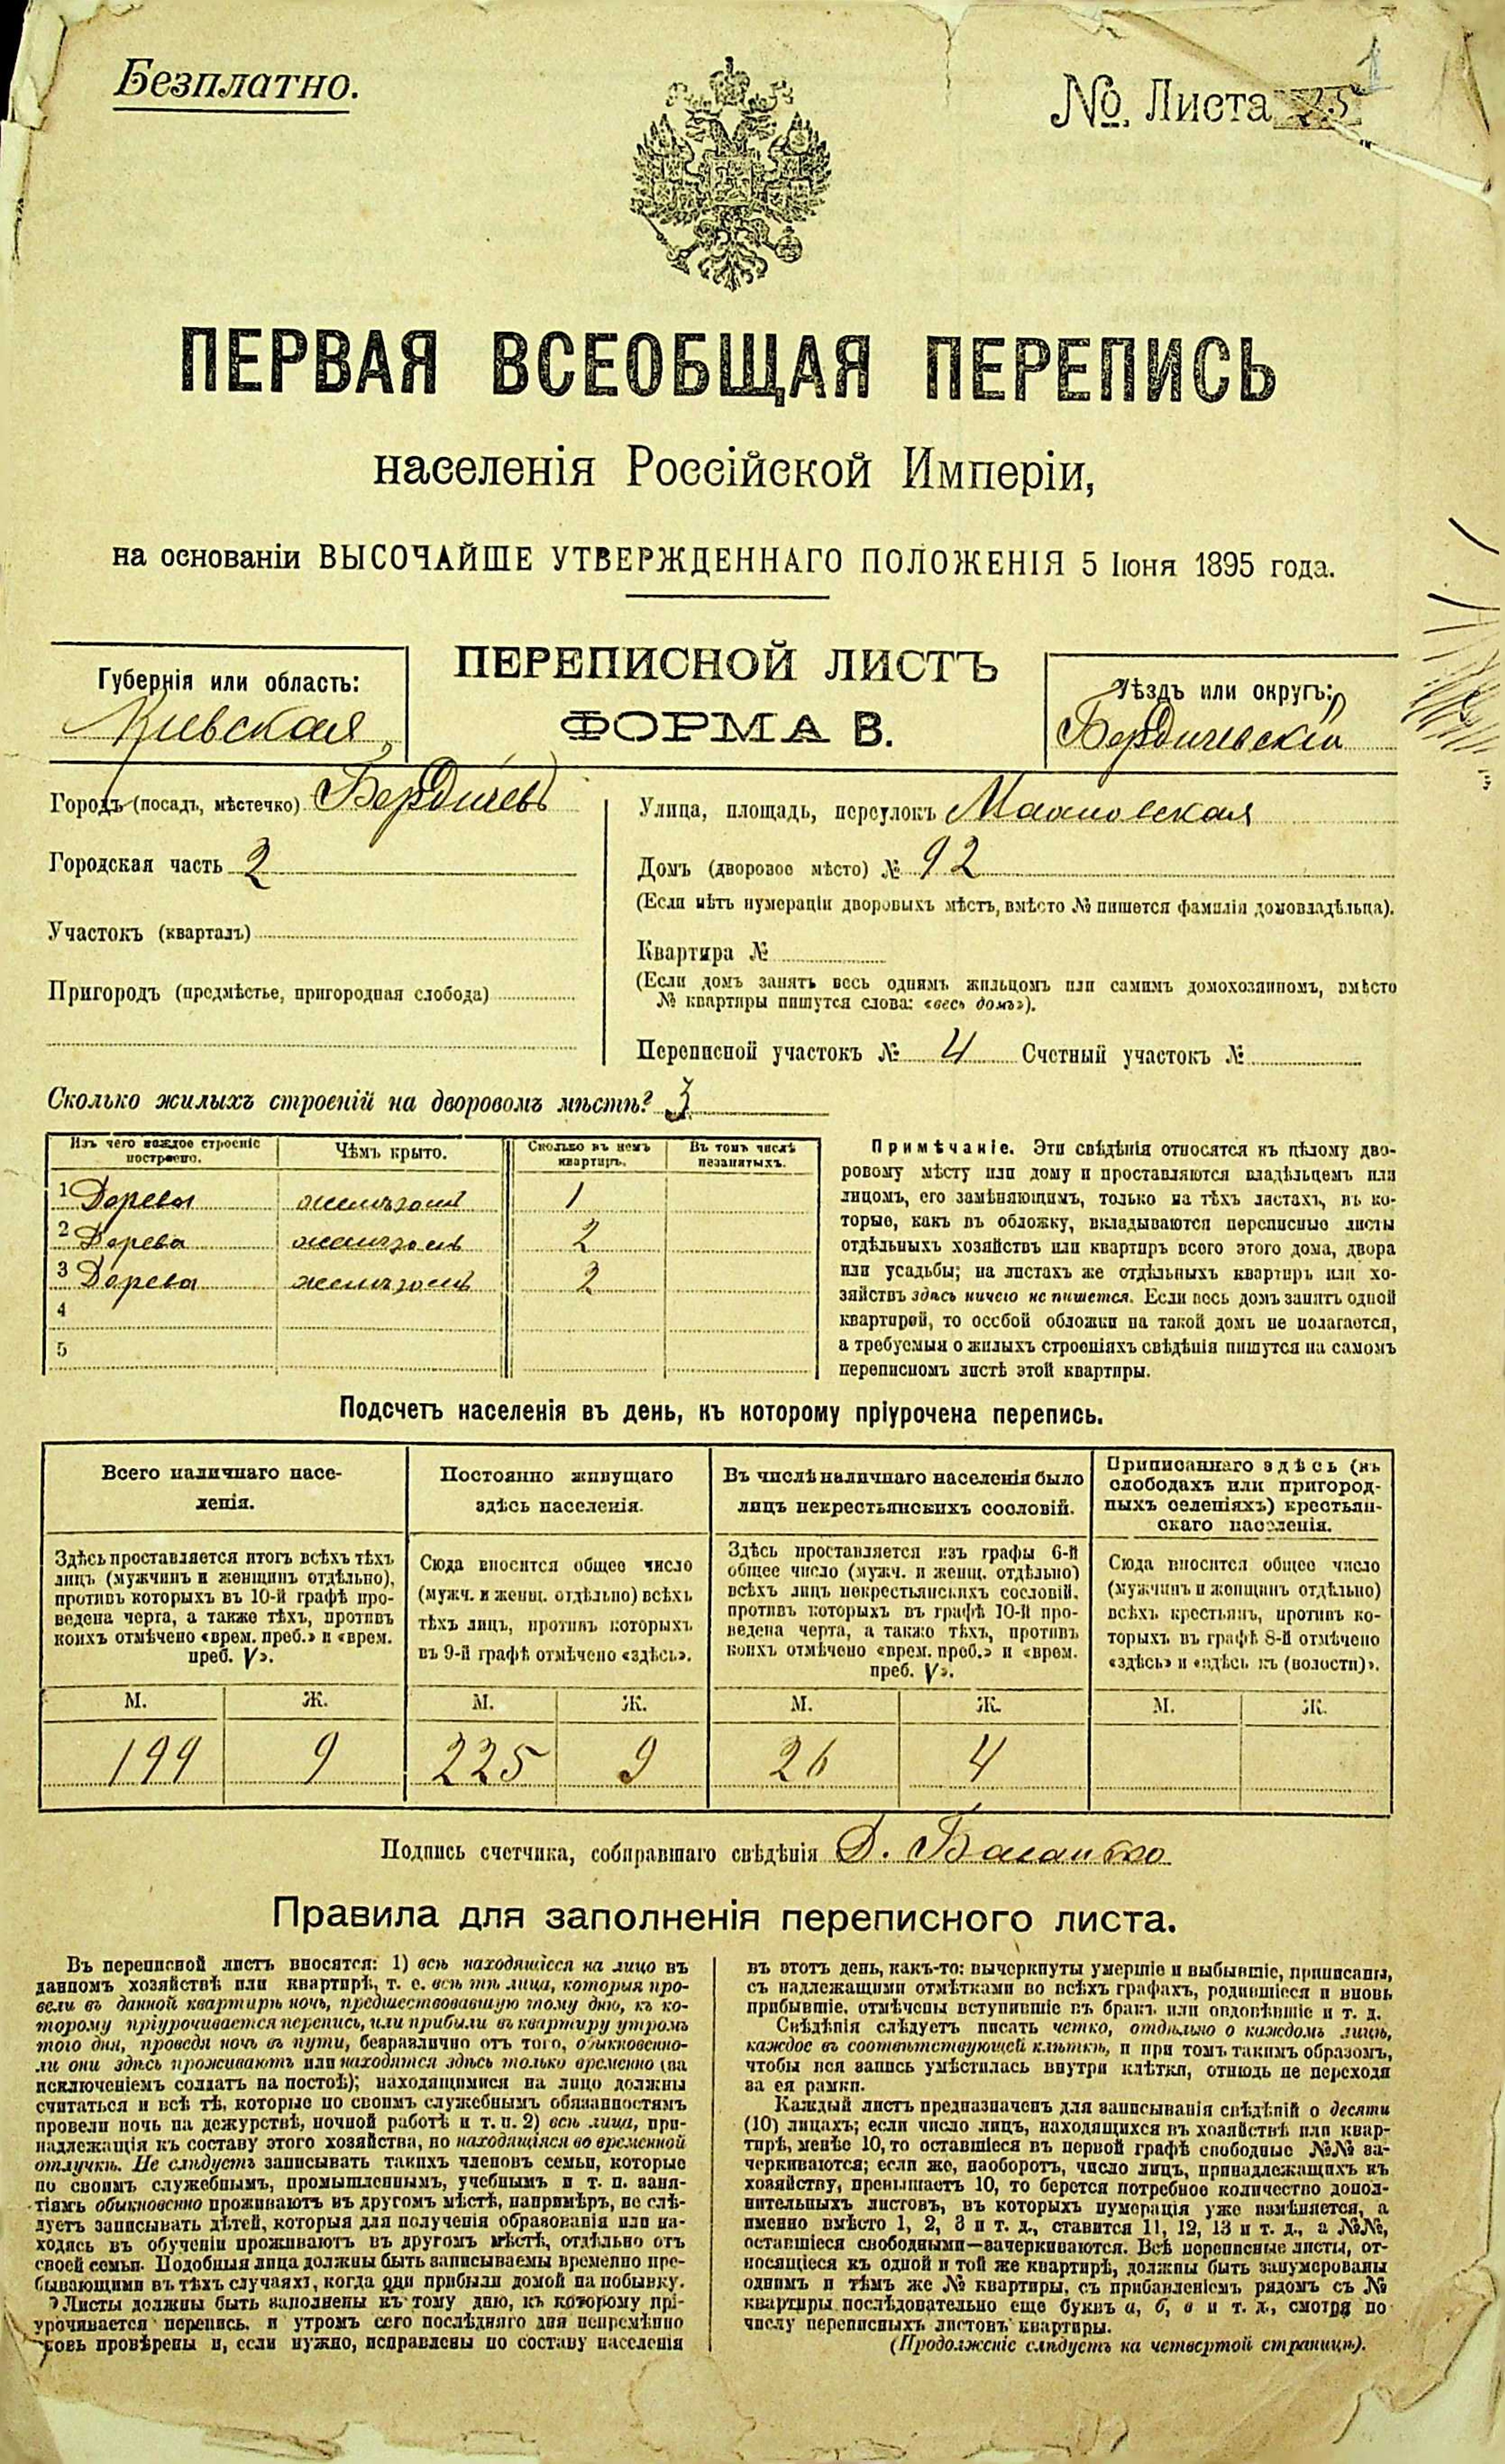 Безплатно.
№ Листа 25
1
ПЕРВАЯ ВСЕОБЩАЯ ПЕРЕПИСЬ
населенія Россійской Имперіи,
на основаніи ВЫСОЧАЙШЕ УТВЕРЖДЕННАГО ПОЛОЖЕНІЯ 5 Іюня 1895 года.
Губернія или область:
Кіевская
ПЕРЕПИСНОЙ ЛИСТЪ
ФОРМА В.
Уѣздъ или округъ:
Бердичевскій
Городъ (посадъ, мѣстечко) Бердичевъ
Городская часть 2
Участокъ (кварталъ)
Пригородъ (предмѣстье, пригородная слобода)
Улица, площадь, переулокъ
Домъ (дворовое мѣсто) № 92
(Если нѣтъ нумераціи дворовыхъ мѣстъ, вмѣсто № пишется фамилія домовладѣльца).
Квартира №
(Если домъ занятъ весь однимъ жильцомъ или самимъ домохозяиномъ, вмѣсто
№ квартиры пишутся слова: «весь домъ»).
Переписной участокъ № 4 Счетный участокъ №
Сколько жилыхъ строеній на дворовомъ мѣстѣ? 3
Изъ чего каждое строеніе построено. Чѣмъ крыто. Сколько въ немъ квартиръ. Въ томъ числѣ незанятыхъ.
1 Дерева желѣзомъ 1
2 Дерева желѣзомъ 2
3 Дерева желѣзомъ 2
4
5
Примѣчаніе. Эти свѣдѣнія относятся къ цѣлому дво-
ровому мѣсту или дому и проставляются владѣльцемъ или
лицомъ, его замѣняющимъ, только на тѣхъ листахъ, въ ко-
торые, какъ въ обложку, вкладываются переписные листы
отдѣльныхъ хозяйствъ или квартиръ всего этого дома, двора
или усадьбы; на листахъ же отдѣльныхъ квартиръ или хо-
зяйствъ здѣсь ничего не пишется. Если весь домъ занятъ одной
квартирой, то особой обложки на такой домъ не полагается,
а требуемыя о жилыхъ строеніяхъ свѣдѣнія пишутся на самомъ
переписномъ листѣ этой квартиры.
Подсчетъ населенія въ день, къ которому пріурочена перепись.
Всего наличнаго насе-
ленія.
Здѣсь проставляется итогъ всѣхъ тѣхъ
лицъ (мужчинъ и женщинъ отдѣльно),
противъ которыхъ въ 10-й графѣ про-
ведена черта, а также тѣхъ, противъ
коихъ отмѣчено «врем. преб.» и «врем.
преб. V».
М. Ж.
199 9
Постоянно живущаго
здѣсь населенія.
Сюда вносится общее число
(мужч. и женщ. отдѣльно) всѣхъ
тѣхъ лицъ, противъ которыхъ
въ 9-й графѣ отмѣчено «здѣсь».
М. Ж.
225 9
Въ числѣ наличнаго населенія было
лицъ некрестьянскихъ сословій.
Здѣсь проставляется изъ графы 6-й
общее число (мужч. и женщ. отдѣльно)
всѣхъ лицъ некрестьянскихъ сословій,
противъ которыхъ въ графѣ 10-й про-
ведена черта, а также тѣхъ, противъ
коихъ отмѣчено «врем. преб.» и «врем.
преб. V».
М. Ж.
26 4
Приписаннаго здѣсь (въ
слободахъ или пригород-
ныхъ селеніяхъ) крестьян-
скаго населенія.
Сюда вносится общее число
(мужчинъ и женщинъ отдѣльно)
всѣхъ крестьянъ, противъ ко-
торыхъ въ графѣ 8-й отмѣчено
«здѣсь» и «здѣсь къ (волости)».
М. Ж.
Подпись счетчика, собиравшаго свѣдѣнія
Правила для заполненія переписного листа.
Въ переписной листъ вносятся: 1) всѣ находящіеся на лицо въ
данномъ хозяйствѣ или квартирѣ, т. е. всѣ тѣ лица, которыя про-
вели въ данной квартирѣ ночь, предшествовавшую тому дню, къ ко-
торому пріурочивается перепись, или прибыли въ квартиру утромъ
того дня, проведя ночь въ пути, безразлично отъ того, обыкновенно-
ли они здѣсь проживаютъ или находятся здѣсь только временно (за
исключеніемъ солдатъ на постоѣ); находящимися на лицо должны
считаться и всѣ тѣ, которые по своимъ служебнымъ обязанностямъ
провели ночь на дежурствѣ, ночной работѣ и т. п. 2) всѣ лица, при-
надлежащія къ составу этого хозяйства, но находящіяся во временной
отлучкѣ. Не слѣдуетъ записывать такихъ членовъ семьи, которые
по своимъ служебнымъ, промышленнымъ, учебнымъ и т. п. заня-
тіямъ обыкновенно проживаютъ въ другомъ мѣстѣ, напримѣръ, не слѣ-
дуетъ записывать дѣтей, которыя для полученія образованія или на-
ходясь въ обученіи проживаютъ въ другомъ мѣстѣ, отдѣльно отъ
своей семьи. Подобныя лица должны быть записываемы временно пре-
бывающими въ тѣхъ случаяхъ, когда они прибыли домой на побывку.
Листы должны быть заполнены къ тому дню, къ которому прі-
урочивается перепись, и утромъ сего послѣдняго дня непремѣнно
вновь провѣрены и, если нужно, исправлены по составу населенія
въ этотъ день, какъ-то: вычеркнуты умершіе и выбывшіе, приписаны,
съ надлежащими отмѣтками во всѣхъ графахъ, родившіеся и вновь
прибывшіе, отмѣчены вступившіе въ бракъ или овдовѣвшіе и т. д.
Свѣдѣнія слѣдуетъ писать четко, отдѣльно о каждомъ лицѣ,
каждое въ соотвѣтствующей клѣткѣ, и при томъ такимъ образомъ,
чтобы вся запись умѣстилась внутри клѣтки, отнюдь не переходя
за ея рамки.
Каждый листъ предназначенъ для записыванія свѣдѣній о десяти
(10) лицахъ; если число лицъ, находящихся въ хозяйствѣ или квар-
тирѣ, менѣе 10, то оставшіеся въ первой графѣ свободные №№ за-
черкиваются; если же, наоборотъ, число лицъ, принадлежащихъ къ
хозяйству, превышаетъ 10, то берется потребное количество допол-
нительныхъ листовъ, въ которыхъ нумерація уже измѣняется, а
именно вмѣсто 1, 2, 3 и т. д., ставится 11, 12, 13 и т. д., а №№,
оставшіеся свободными—зачеркиваются. Всѣ переписные листы, от-
носящіеся къ одной и той же квартирѣ, должны быть занумерованы
однимъ и тѣмъ же № квартиры, съ прибавленіемъ рядомъ съ №
квартиры последовательно еще буквъ а, б, в и т. д., смотря по
числу переписныхъ листовъ квартиры.
(Продолженіе слѣдуетъ на четвертой страницѣ).